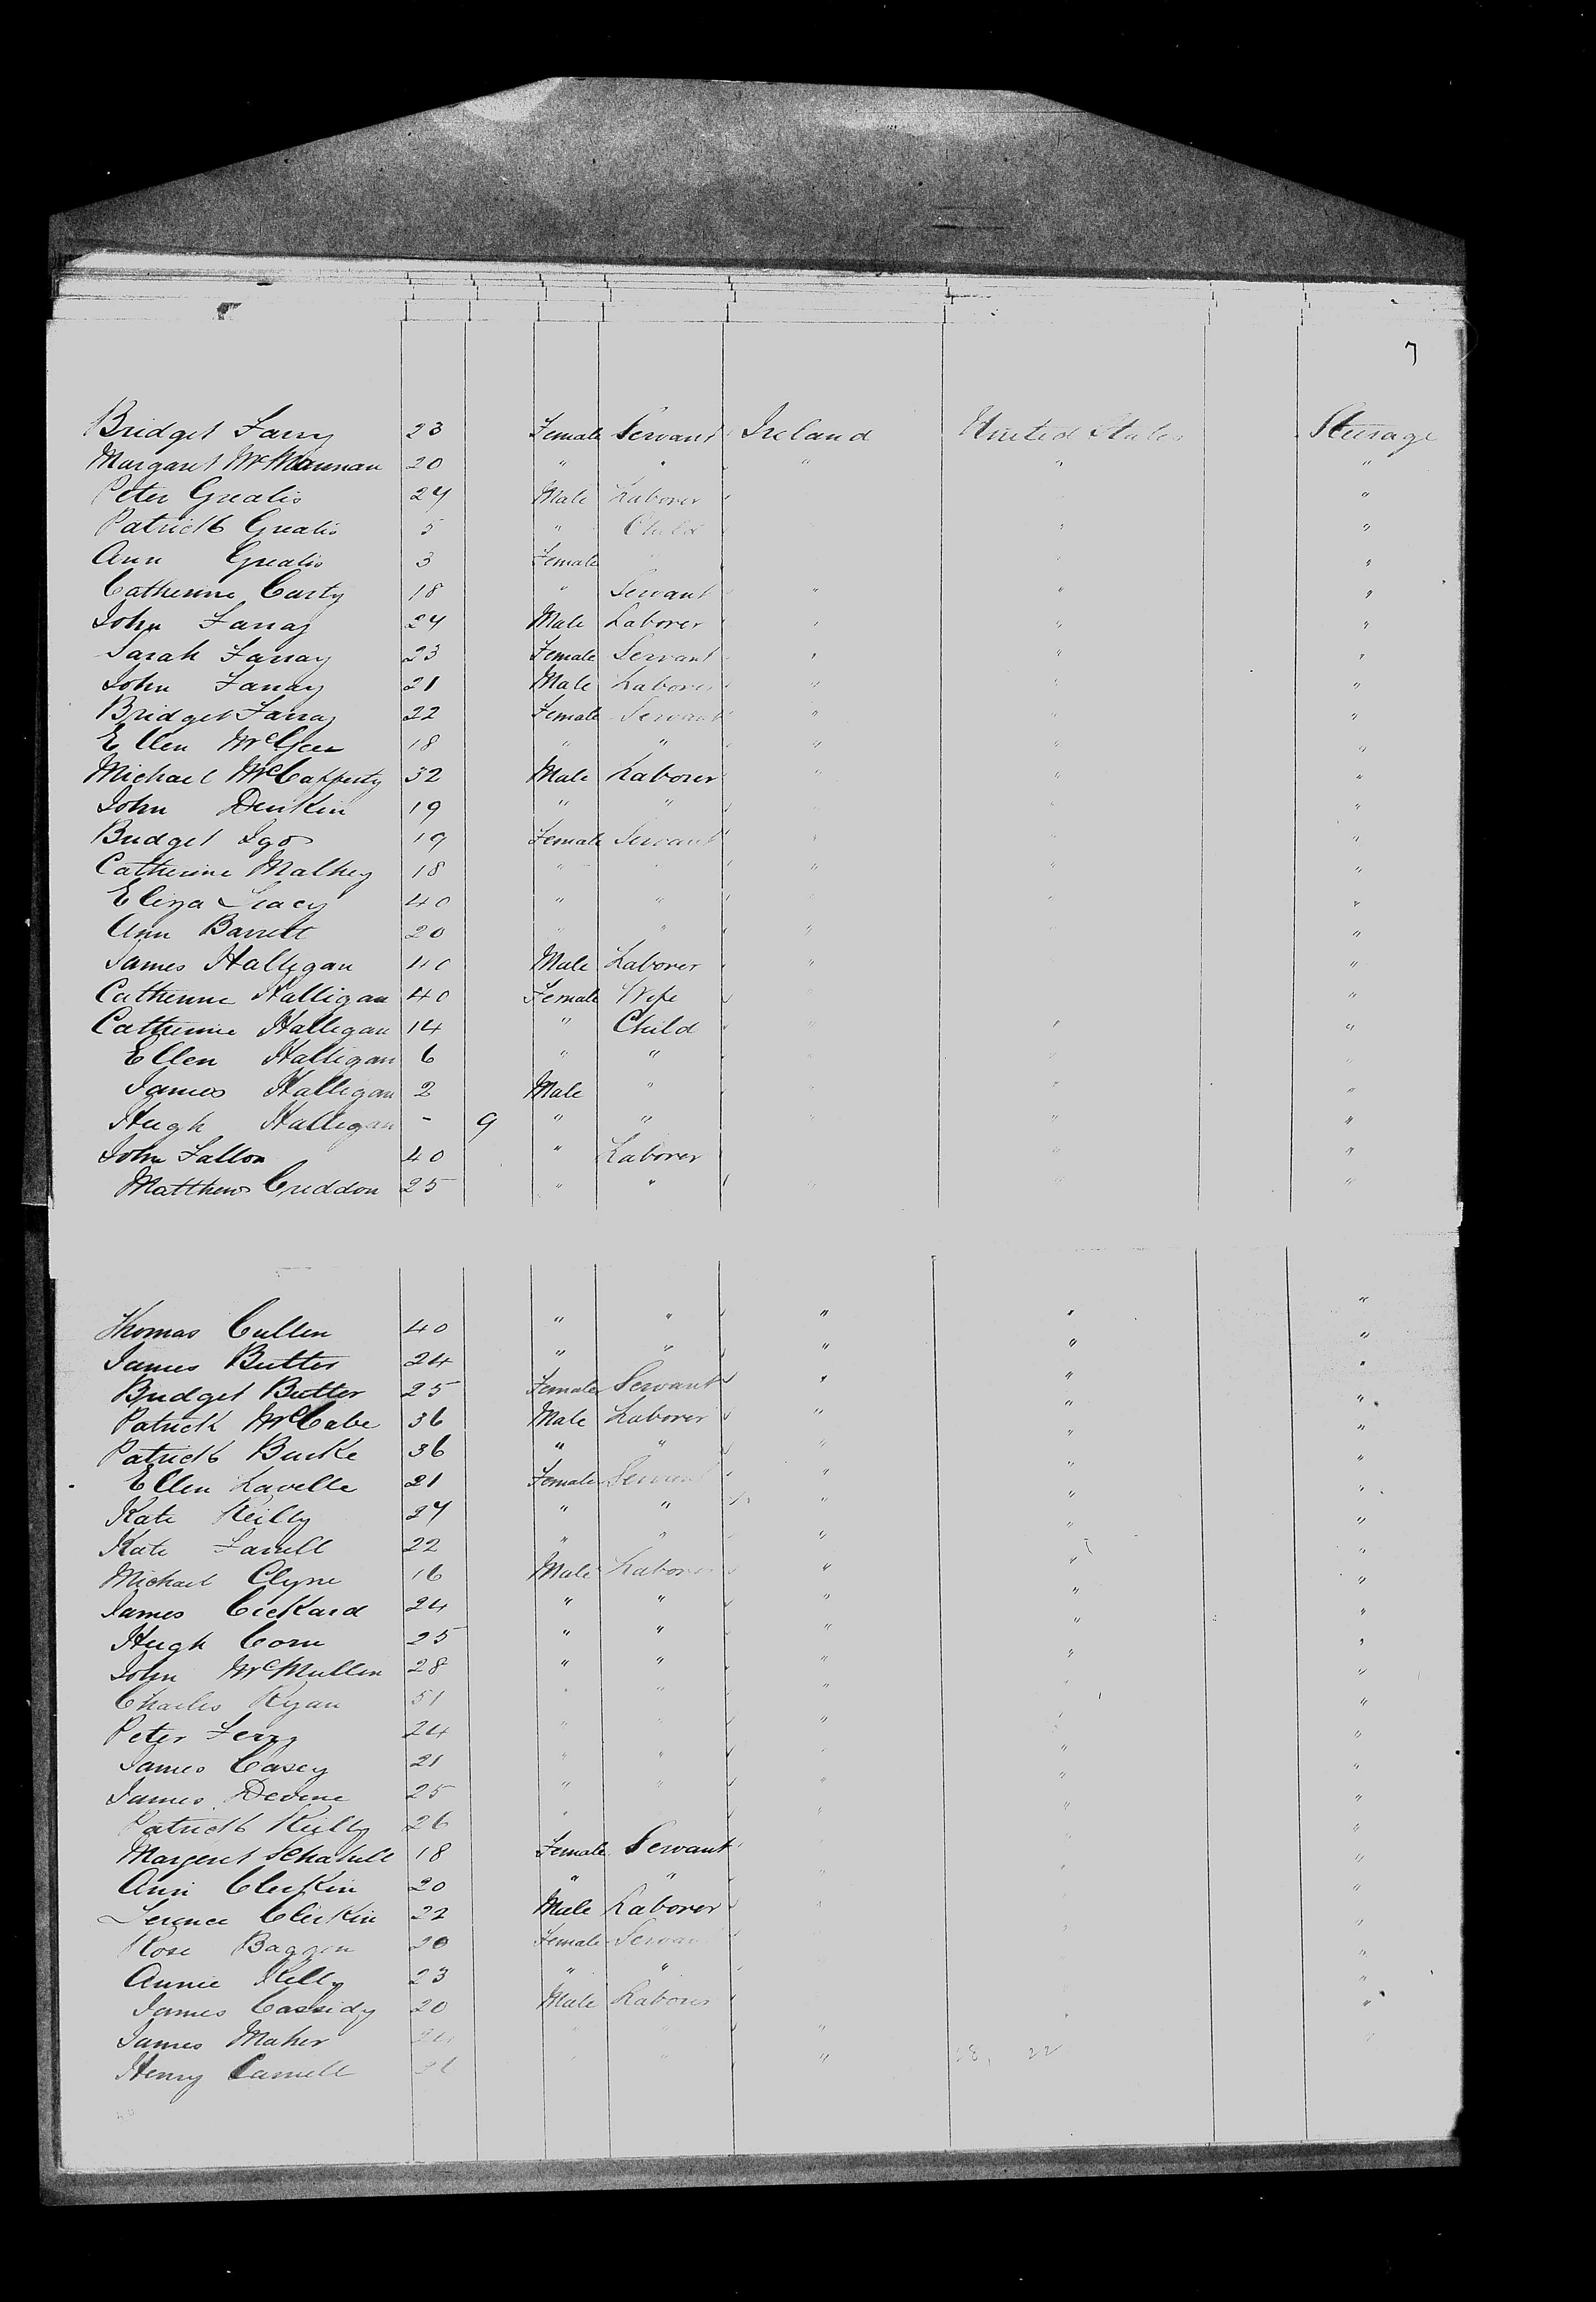 7
Bridget Farry 23 Female Servant Ireland United States Steerage
Margaret McMannan 20 " " " " "
Peter Grealis 24 Male Laborer "
Patrick Grealis 5 " Child " "
Ann Grealis 3 Female " "
Catherine Carty 18 " Servant " " "
John Farray 24 Male Laborer " " "
Sarah Farray 23 Female Servant " " "
John Farray 21 Male Laborer " " "
Bridget Farray 22 Female Servant " " "
Ellen McGee 18 " " " " "
Michael McCafferty 32 Male Laborer " " "
John Durkin 19 " " " "
Bridget Igo 19 Female Servant " " "
Catherine Malhey 18 " " " " "
Eliza Leacy 40 " " " "
Ann Barrett 20 " " " "
James Halligan 40 Male Laborer " "
Catherine Halligan 40 Female Wife "
Catherine Halligan 14 " Child " "
Ellen Halligan 6 " " " "
James Halligan 2 Male " " "
Hugh Halligan - 9 " " " " "
John Fallon 40 " Laborer " "
Matthew Creddon 25 " " " " "
Thomas Cullen 40 " " " " "
James Butler 24 " " " " "
Bridget Butler 25 Female Servant " " "
Patrick McCabe 36 Male Laborer " " "
Patrick Burke 36 " " " " "
Ellen Lavelle 21 Female Servant " " "
Kate Reilly 24 " " " " "
Kate Farrell 22 " " " " "
Michael Clyne 16 Male Laborer " " "
James Cickard 24 " " " " "
Hugh Corn 25 " " " " "
John McMullen 28 " " " " "
Charles Ryan 51 " " " " "
Peter Ferry 24 " " " " "
James Casey 21 " " " "
James Devine 25 " " " " "
Patrick Reilly 26 " " " "
Margeret Schahill 18 Female Servant " "
Ann Clerkin 20 " " " " "
Terence Clerkin 22 Male Laborer " "
Rose Baggon 20 Female Servant " "
Annie Kelly 23 " " "
James Cassidy 20 Male Laborer "
James Maher " "
Henry Carrell " "